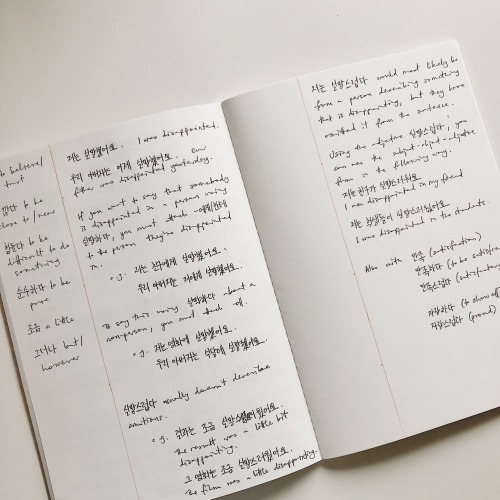 to believe/
trust
to be
close to/near
힘들다 to be
difficult to do
something
순수하다 to be
pure
조금 a little
그러나 but/
however
저는 실망했어요. I was disappointed.
우리 아버지는 어제 실망했어요. Our
father was disappointed yesterday.
If you want to say that somebody
is disappointed in a person using
실망하다, you must attach -에게/한테
to the person they're disappointed
in.
e.g. 저는 친구에게 실망했어요.
우리 아버지는 저에게 실망했어요.
To say this using 실망하다 about a
non-person, you must attach 에.
e.g. 저는 영화에 실망했어요.
우리 아버지는 식당에 실망했어요.
실망스럽다 usually doesn't describe
emotions.
e.g. 결과는 조금 실망스러웠어요.
the result was a little bit
disappointing.
그 영화는 조금 실망스러웠어요.
the film was a little disappointing.
저는 실망스럽다 would most likely be
from a person describing something
that is disappointing, but they have
omitted it from the sentence.
Using the adjective 실망스럽다, you
can use the subject-object-adjective
form in the following way:
저는 친구가 실망스러웠어요
I was disappointed in my friend
저는 학생들이 실망스러웠어요
I was disappointed in the students.
Also with 만족 (satisfaction)
만족하다 (to be satisfie
만족스럽다 (satisfacto
자랑하다 (to show of
자랑스럽다 (proud)